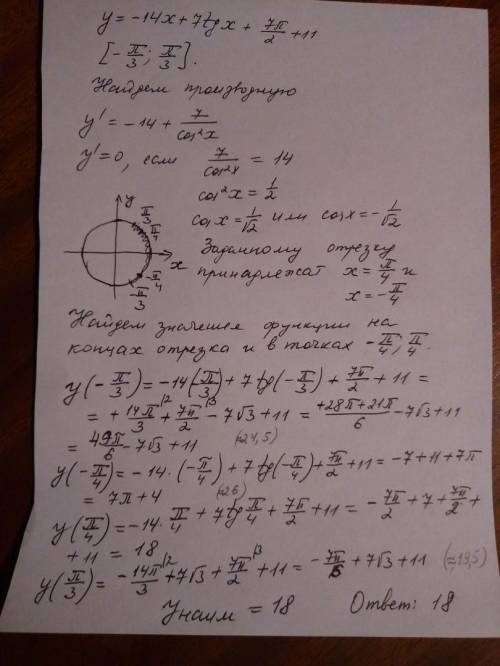 y = -14x + 7tg x + 7π/2 + 11
[-π/3; π/3].
Найдем производную
y' = -14 + 7/cos²x
y' = 0, если 7/cos²x = 14
cos²x = 1/2
cos x = 1/√2 или cos x = -1/√2
y
π/3
π/4
x
-π/4
-π/3
Заданному отрезку
принадлежат x = π/4 и
x = -π/4
Найдем значения функции на
концах отрезка и в точках -π/4; π/4.
y(-π/3) = -14(-π/3) + 7tg(-π/3) + 7π/2 + 11 =
= +14π/3 |2 + 7π/2 |3 - 7√3 + 11 = +28π+21π/6 - 7√3 + 11
= 49π/6 - 7√3 + 11 (≈24,5)
y(-π/4) = -14·(-π/4) + 7tg(-π/4) + 7π/2 + 11 = -7 + 11 + 7π
= 7π + 4 (≈26)
y(π/4) = -14·π/4 + 7tg π/4 + 7π/2 + 11 = -7π/2 + 7 + 7π/2 +
+ 11 = 18
y(π/3) = -14π/3 |2 + 7√3 + 7π/2 |3 + 11 = -7π/6 + 7√3 + 11 (≈19,5)
yнаим = 18 Ответ: 18